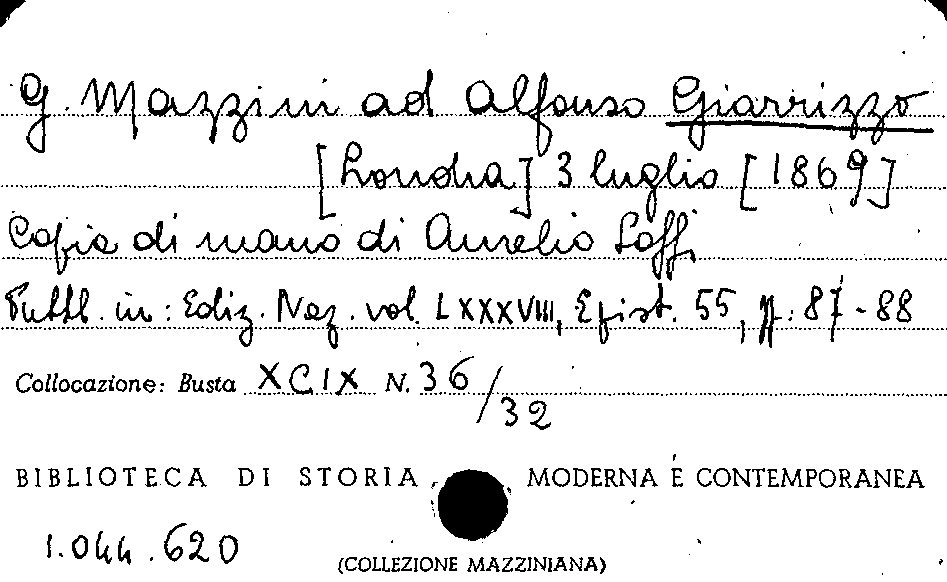 G. Mazzini ad Alfonso Giarrizzo
[Londra] 3 luglio [1869]
Copia di mano di Aurelio Saffi
Pubbl. in: Ediz. Naz. vol. LXXXVIII, Epist. 55, pp. 87-88
Collocazione: Busta XCIX N. 36/32
BIBLIOTECA DI STORIA MODERNA E CONTEMPORANEA
1.044.620
(COLLEZIONE MAZZINIANA)